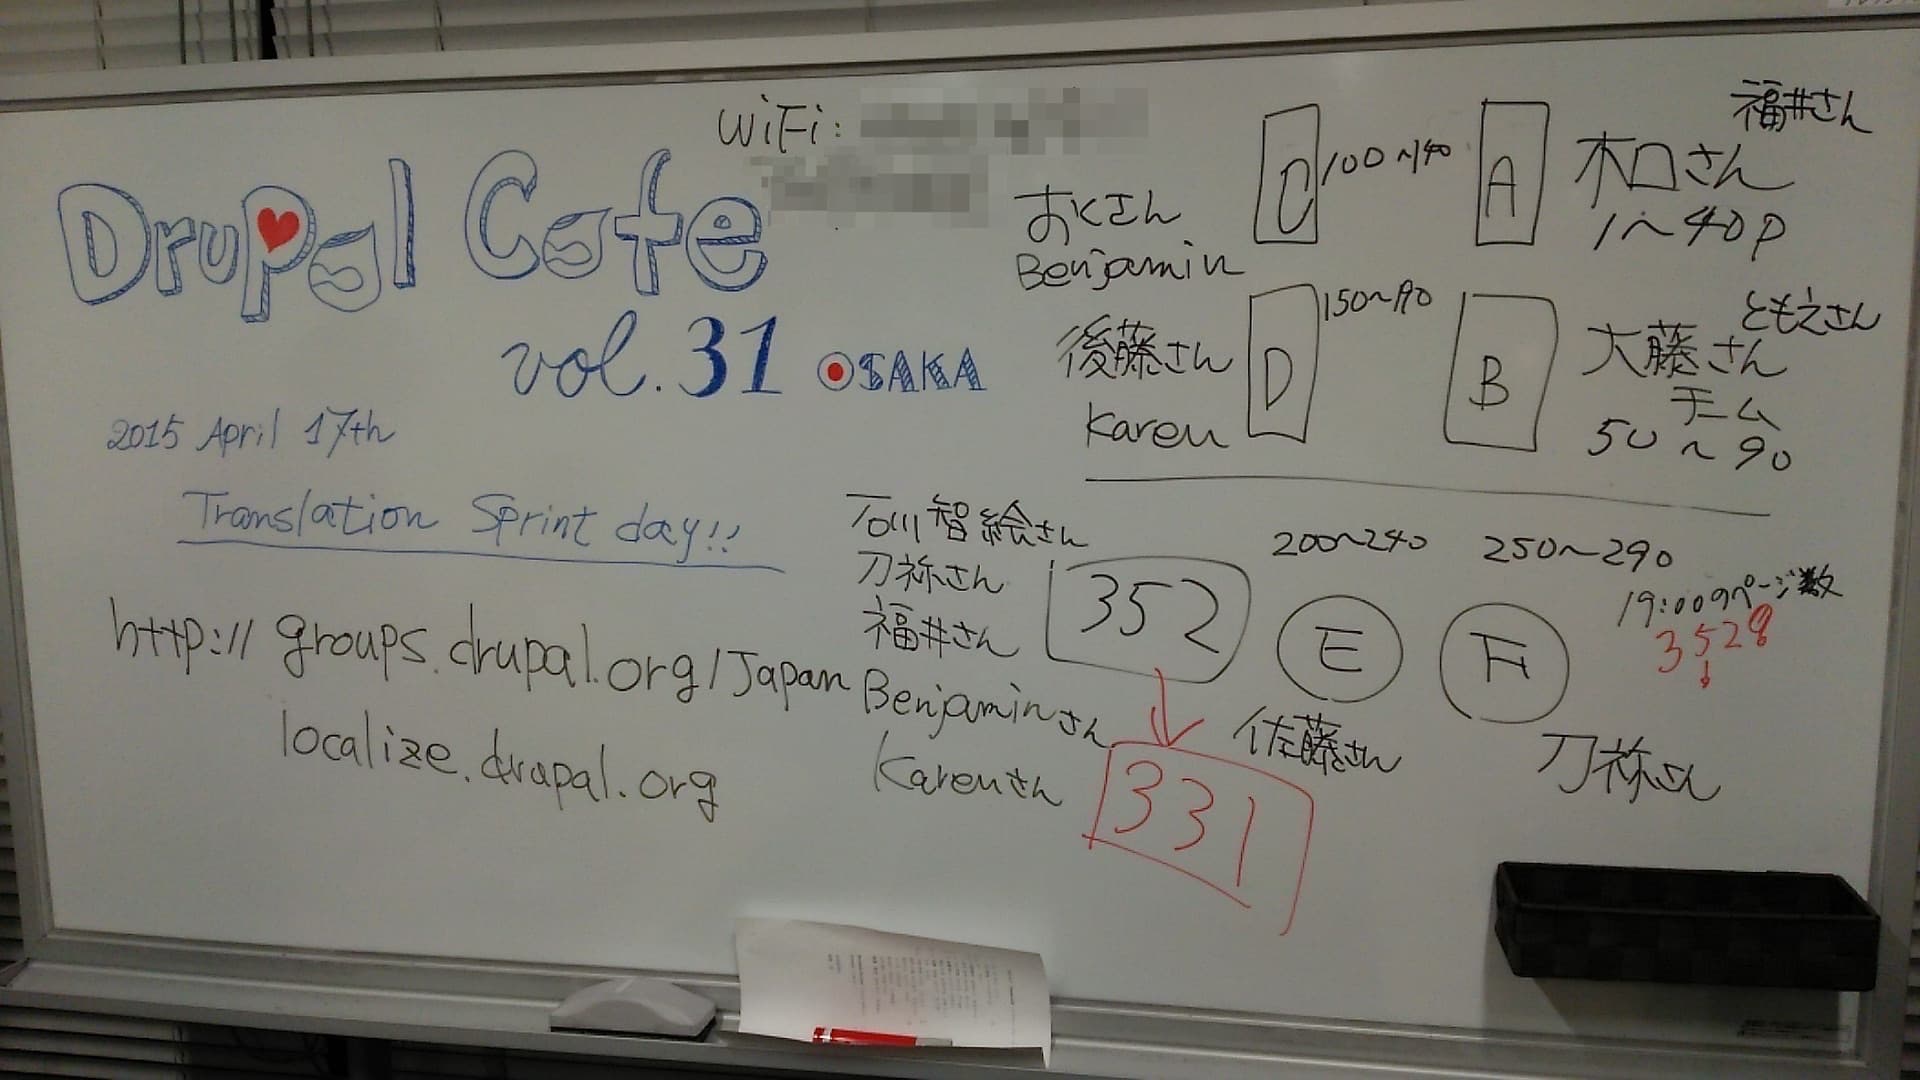 WiFi:
Drupal Cafe
vol.31 OSAKA
2015 April 17th
Translation Sprint day!!
http://groups.drupal.org/Japan
localize.drupal.org
おくさん
Benjamin
C
100~140
A
福井さん
木口さん
1~40p
後藤さん
Karen
D
150~190
B
ともえさん
大藤さん
50~90
石川智絵さん
刀祢さん
福井さん
Benjaminさん
Karenさん
352
331
200~240
E
佐藤さん
250~290
F
刀祢さん
19:00のページ数